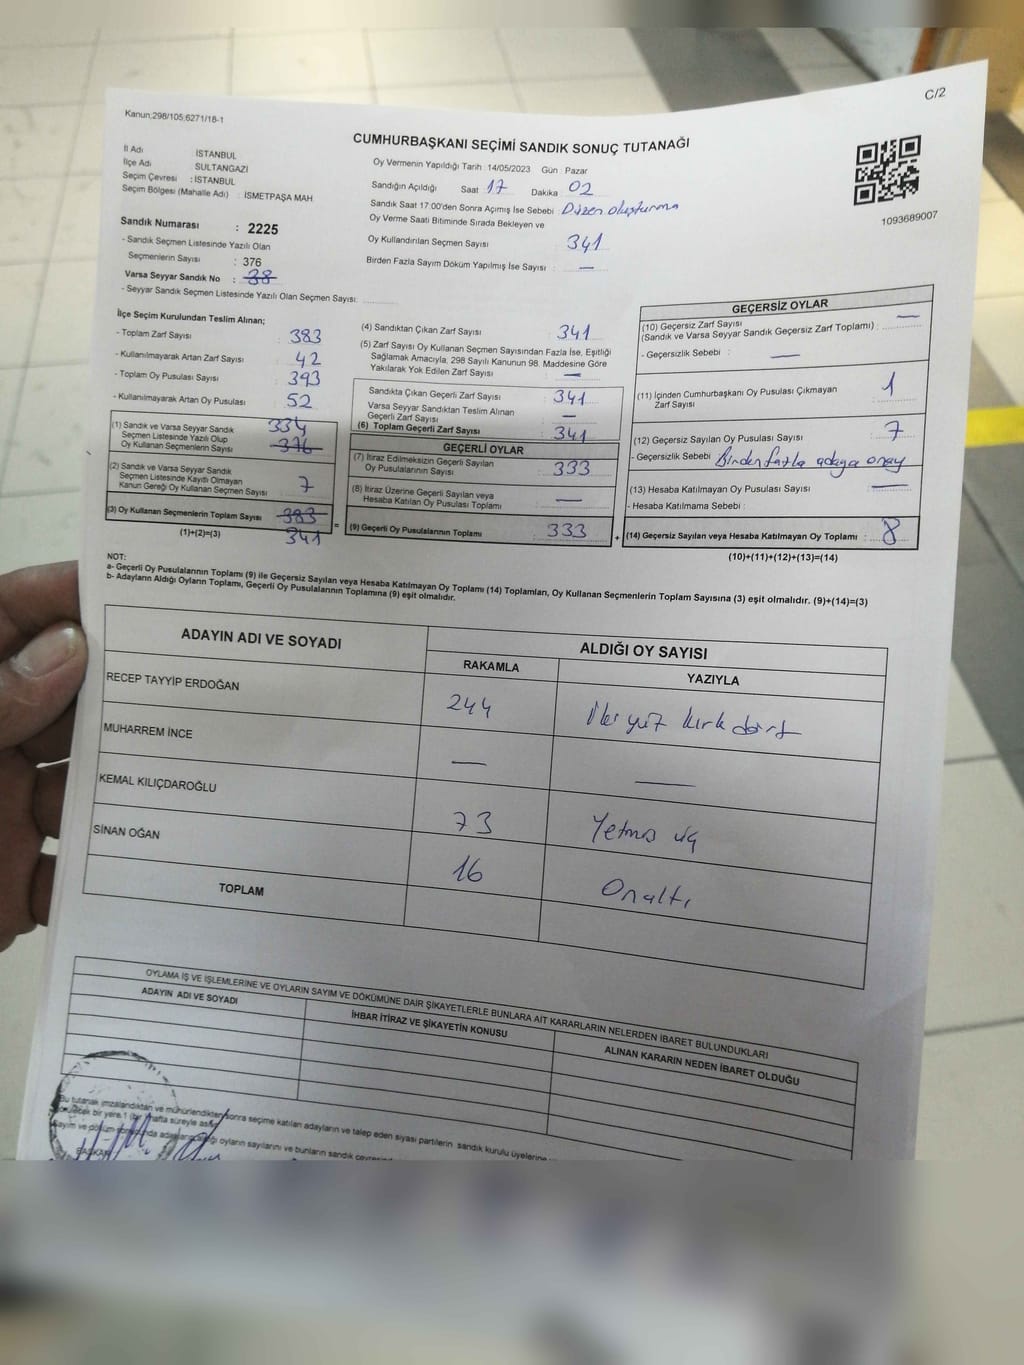 C/2
Kanun;298/105;6271/18-1
CUMHURBAŞKANI SEÇİMİ SANDIK SONUÇ TUTANAĞI
İl Adı İSTANBUL
İlçe Adı SULTANGAZİ
Seçim Çevresi : İSTANBUL
Seçim Bölgesi (Mahalle Adı) : İSMETPAŞA MAH
Oy Vermenin Yapıldığı Tarih : 14/05/2023 Gün : Pazar
Sandığın Açıldığı Saat 17 Dakika 02
Sandık Saat 17:00'den Sonra Açımış İse Sebebi : Düzen oluşturma
Oy Verme Saati Bitiminde Sırada Bekleyen ve
Oy Kullandırılan Seçmen Sayısı 341
Birden Fazla Sayım Döküm Yapılmış İse Sayısı : —
1093689007
Sandık Numarası : 2225
- Sandık Seçmen Listesinde Yazılı Olan
Seçmenlerin Sayısı : 376
Varsa Seyyar Sandık No : 38
- Seyyar Sandık Seçmen Listesinde Yazılı Olan Seçmen Sayısı:
İlçe Seçim Kurulundan Teslim Alınan;
- Toplam Zarf Sayısı 383
- Kullanılmayarak Artan Zarf Sayısı 42
- Toplam Oy Pusulası Sayısı 393
- Kullanılmayarak Artan Oy Pusulası 52
(1) Sandık ve Varsa Seyyar Sandık 334
Seçmen Listesinde Yazılı Olup
Oy Kullanan Seçmenlerin Sayısı 376
(2) Sandık ve Varsa Seyyar Sandık
Seçmen Listesinde Kayıtlı Olmayan
Kanun Gereği Oy Kullanan Seçmen Sayısı 7
(3) Oy Kullanan Seçmenlerin Toplam Sayısı 383
(1)+(2)=(3) 341
(4) Sandıktan Çıkan Zarf Sayısı 341
(5) Zarf Sayısı Oy Kullanan Seçmen Sayısından Fazla İse, Eşitliği
Sağlamak Amacıyla, 298 Sayılı Kanunun 98. Maddesine Göre
Yakılarak Yok Edilen Zarf Sayısı —
Sandıkta Çıkan Geçerli Zarf Sayısı 341
Varsa Seyyar Sandıktan Teslim Alınan
Geçerli Zarf Sayısı : —
(6) Toplam Geçerli Zarf Sayısı 341
GEÇERLİ OYLAR
(7) İtiraz Edilmeksizin Geçerli Sayılan
Oy Pusulalarının Sayısı 333
(8) İtiraz Üzerine Geçerli Sayılan veya
Hesaba Katılan Oy Pusulası Toplamı —
= (9) Geçerli Oy Pusulalarının Toplamı 333
GEÇERSİZ OYLAR
(10) Geçersiz Zarf Sayısı —
(Sandık ve Varsa Seyyar Sandık Geçersiz Zarf Toplamı) :
- Geçersizlik Sebebi : —
(11) İçinden Cumhurbaşkanı Oy Pusulası Çıkmayan 1
Zarf Sayısı
(12) Geçersiz Sayılan Oy Pusulası Sayısı 7
- Geçersizlik Sebebi Birden fazla adaya onay
(13) Hesaba Katılmayan Oy Pusulası Sayısı —
- Hesaba Katılmama Sebebi :
+ (14) Geçersiz Sayılan veya Hesaba Katılmayan Oy Toplamı : 8
(10)+(11)+(12)+(13)=(14)
NOT:
a- Geçerli Oy Pusulalarının Toplamı (9) ile Geçersiz Sayılan veya Hesaba Katılmayan Oy Toplamı (14) Toplamları, Oy Kullanan Seçmenlerin Toplam Sayısına (3) eşit olmalıdır. (9)+(14)=(3)
b- Adayların Aldığı Oyların Toplamı, Geçerli Oy Pusulalarının Toplamına (9) eşit olmalıdır.
ADAYIN ADI VE SOYADI ALDIĞI OY SAYISI
RAKAMLA YAZIYLA
RECEP TAYYİP ERDOĞAN 244 İki yüz kırk dört
MUHARREM İNCE — —
KEMAL KILIÇDAROĞLU 73 Yetmiş üç
SİNAN OĞAN 16 Onaltı
TOPLAM
OYLAMA İŞ VE İŞLEMLERİNE VE OYLARIN SAYIM VE DÖKÜMÜNE DAİR ŞİKAYETLERLE BUNLARA AİT KARARLARIN NELERDEN İBARET BULUNDUKLARI
ADAYIN ADI VE SOYADI İHBAR İTİRAZ VE ŞİKAYETİN KONUSU ALINAN KARARIN NEDEN İBARET OLDUĞU
Bu tutanak imzalandıktan ve mühürlendikten sonra seçime katılan adayların ve talep eden siyasi partilerin sandık kurulu üyelerine
bir yere 1 (bir) hafta süreyle
Sayım ve döküm oyların sayılarını ve bunların sandık
BAŞKAN